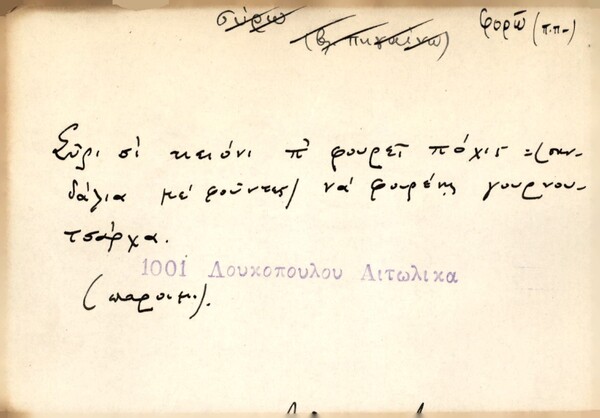 σύρω
(βλ. πηγαίνω)
φορῶ (π.π-)
Σῦρι σὶ κειόνι π' φουρεῖ πόχις =(σαν-
δάλια μέ φοῦντες) νά φουρένῃς γουρνου-
τσάρχα.
1001 Λουκοπουλου Αιτωλικα
(παροιμ.).